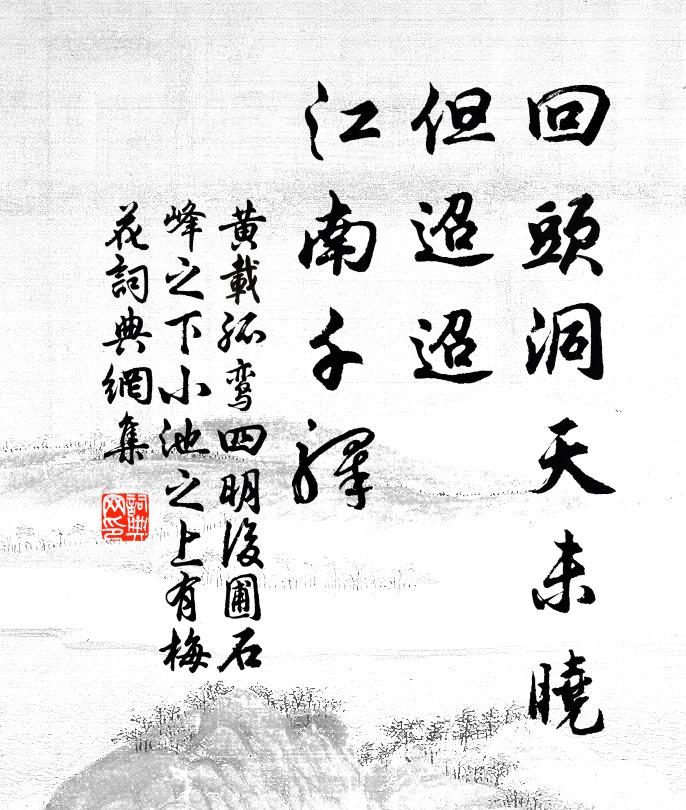 回頭洞天未曉
但迢迢
江南千驛
黄載孤鸾四明後圃石
峰之下小池之上有梅
花詞典網集
詞典網印